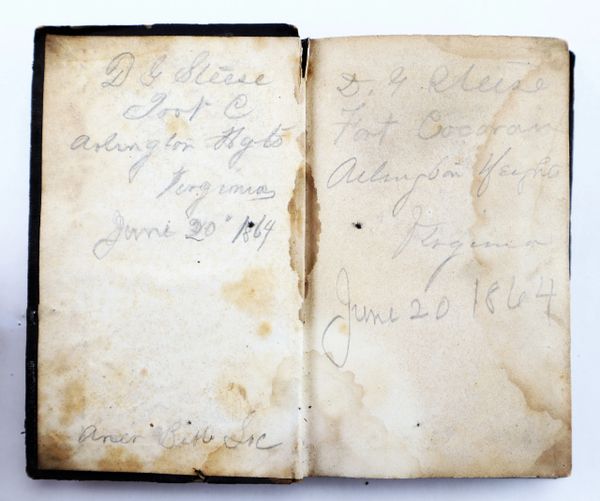 D G Steese
Fort C
Arlington Hgts
Virginia
June 20" 1864
Amer Bible Soc
D. G. Steese
Fort Cocoran
Arlington Heights
Virginia
June 20 1864